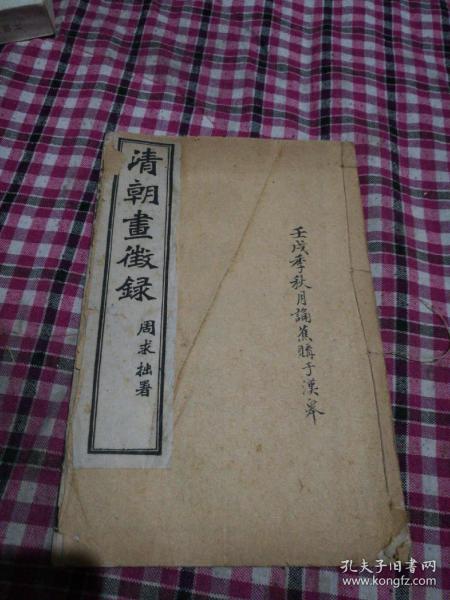 清朝畫徵錄
周求拙署
壬戌季秋月誦蕉購于漢皋
孔夫子旧书网
www.kongfz.com